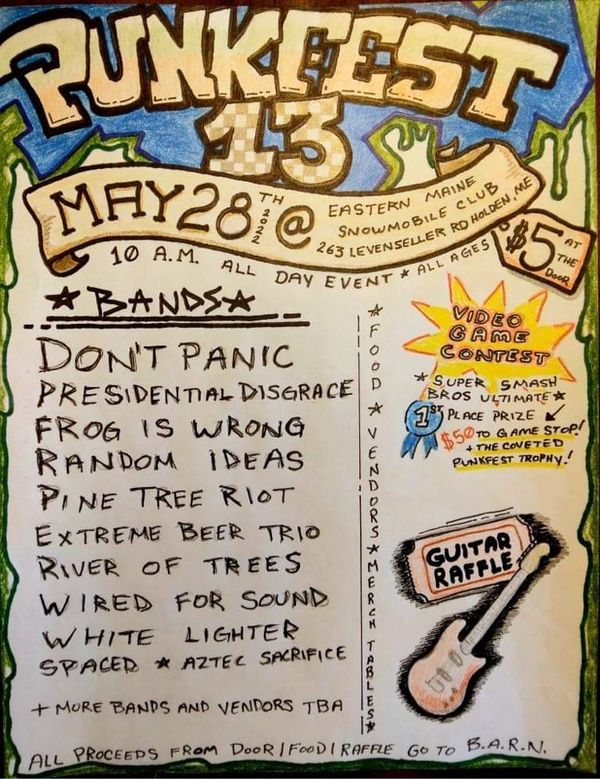 PUNKFEST
13
MAY 28TH 2022 @
EASTERN MAINE
SNOWMOBILE CLUB
263 LEVENSELLER RD HOLDEN, ME
$5 AT THE DOOR
10 A.M. ALL DAY EVENT * ALL AGES
★ BANDS ★
DON'T PANIC
PRESIDENTIAL DISGRACE
FROG IS WRONG
RANDOM IDEAS
PINE TREE RIOT
EXTREME BEER TRIO
RIVER OF TREES
WIRED FOR SOUND
WHITE LIGHTER
SPACED ★ AZTEC SACRIFICE
+ MORE BANDS AND VENDORS TBA
★ FOOD ★ VENDORS ★ MERCH TABLES ★
VIDEO
GAME
CONTEST
★ SUPER SMASH
BROS ULTIMATE ★
1ST PLACE PRIZE
$50 TO GAME STOP!
+ THE COVETED
PUNKFEST TROPHY!
GUITAR
RAFFLE
ALL PROCEEDS FROM DOOR/FOOD/RAFFLE GO TO B.A.R.N.